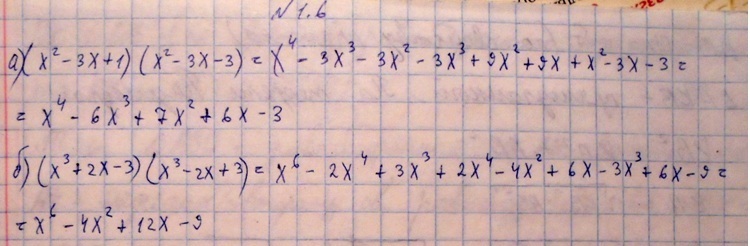 N 1.6
а) (x² - 3x + 1) (x² - 3x - 3) = x⁴ - 3x³ - 3x² - 3x³ + 9x² + 9x + x² - 3x - 3 =
= x⁴ - 6x³ + 7x² + 6x - 3
б) (x³ + 2x - 3) (x³ - 2x + 3) = x⁶ - 2x⁴ + 3x³ + 2x⁴ - 4x² + 6x - 3x³ + 6x - 9 =
= x⁶ - 4x² + 12x - 9